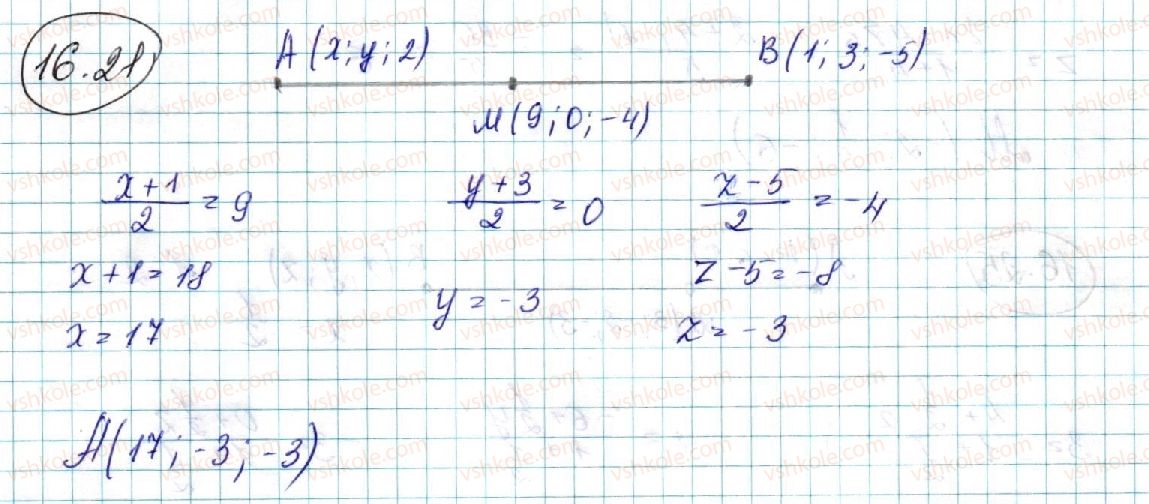 16.21
A(x; y; 2) B(1; 3; -5)
M(9; 0; -4)
x+1/2 = 9 y+3/2 = 0 z-5/2 = -4
x+1=18 z-5=-8
y=-3
x=17 z=-3
A(17; -3; -3)